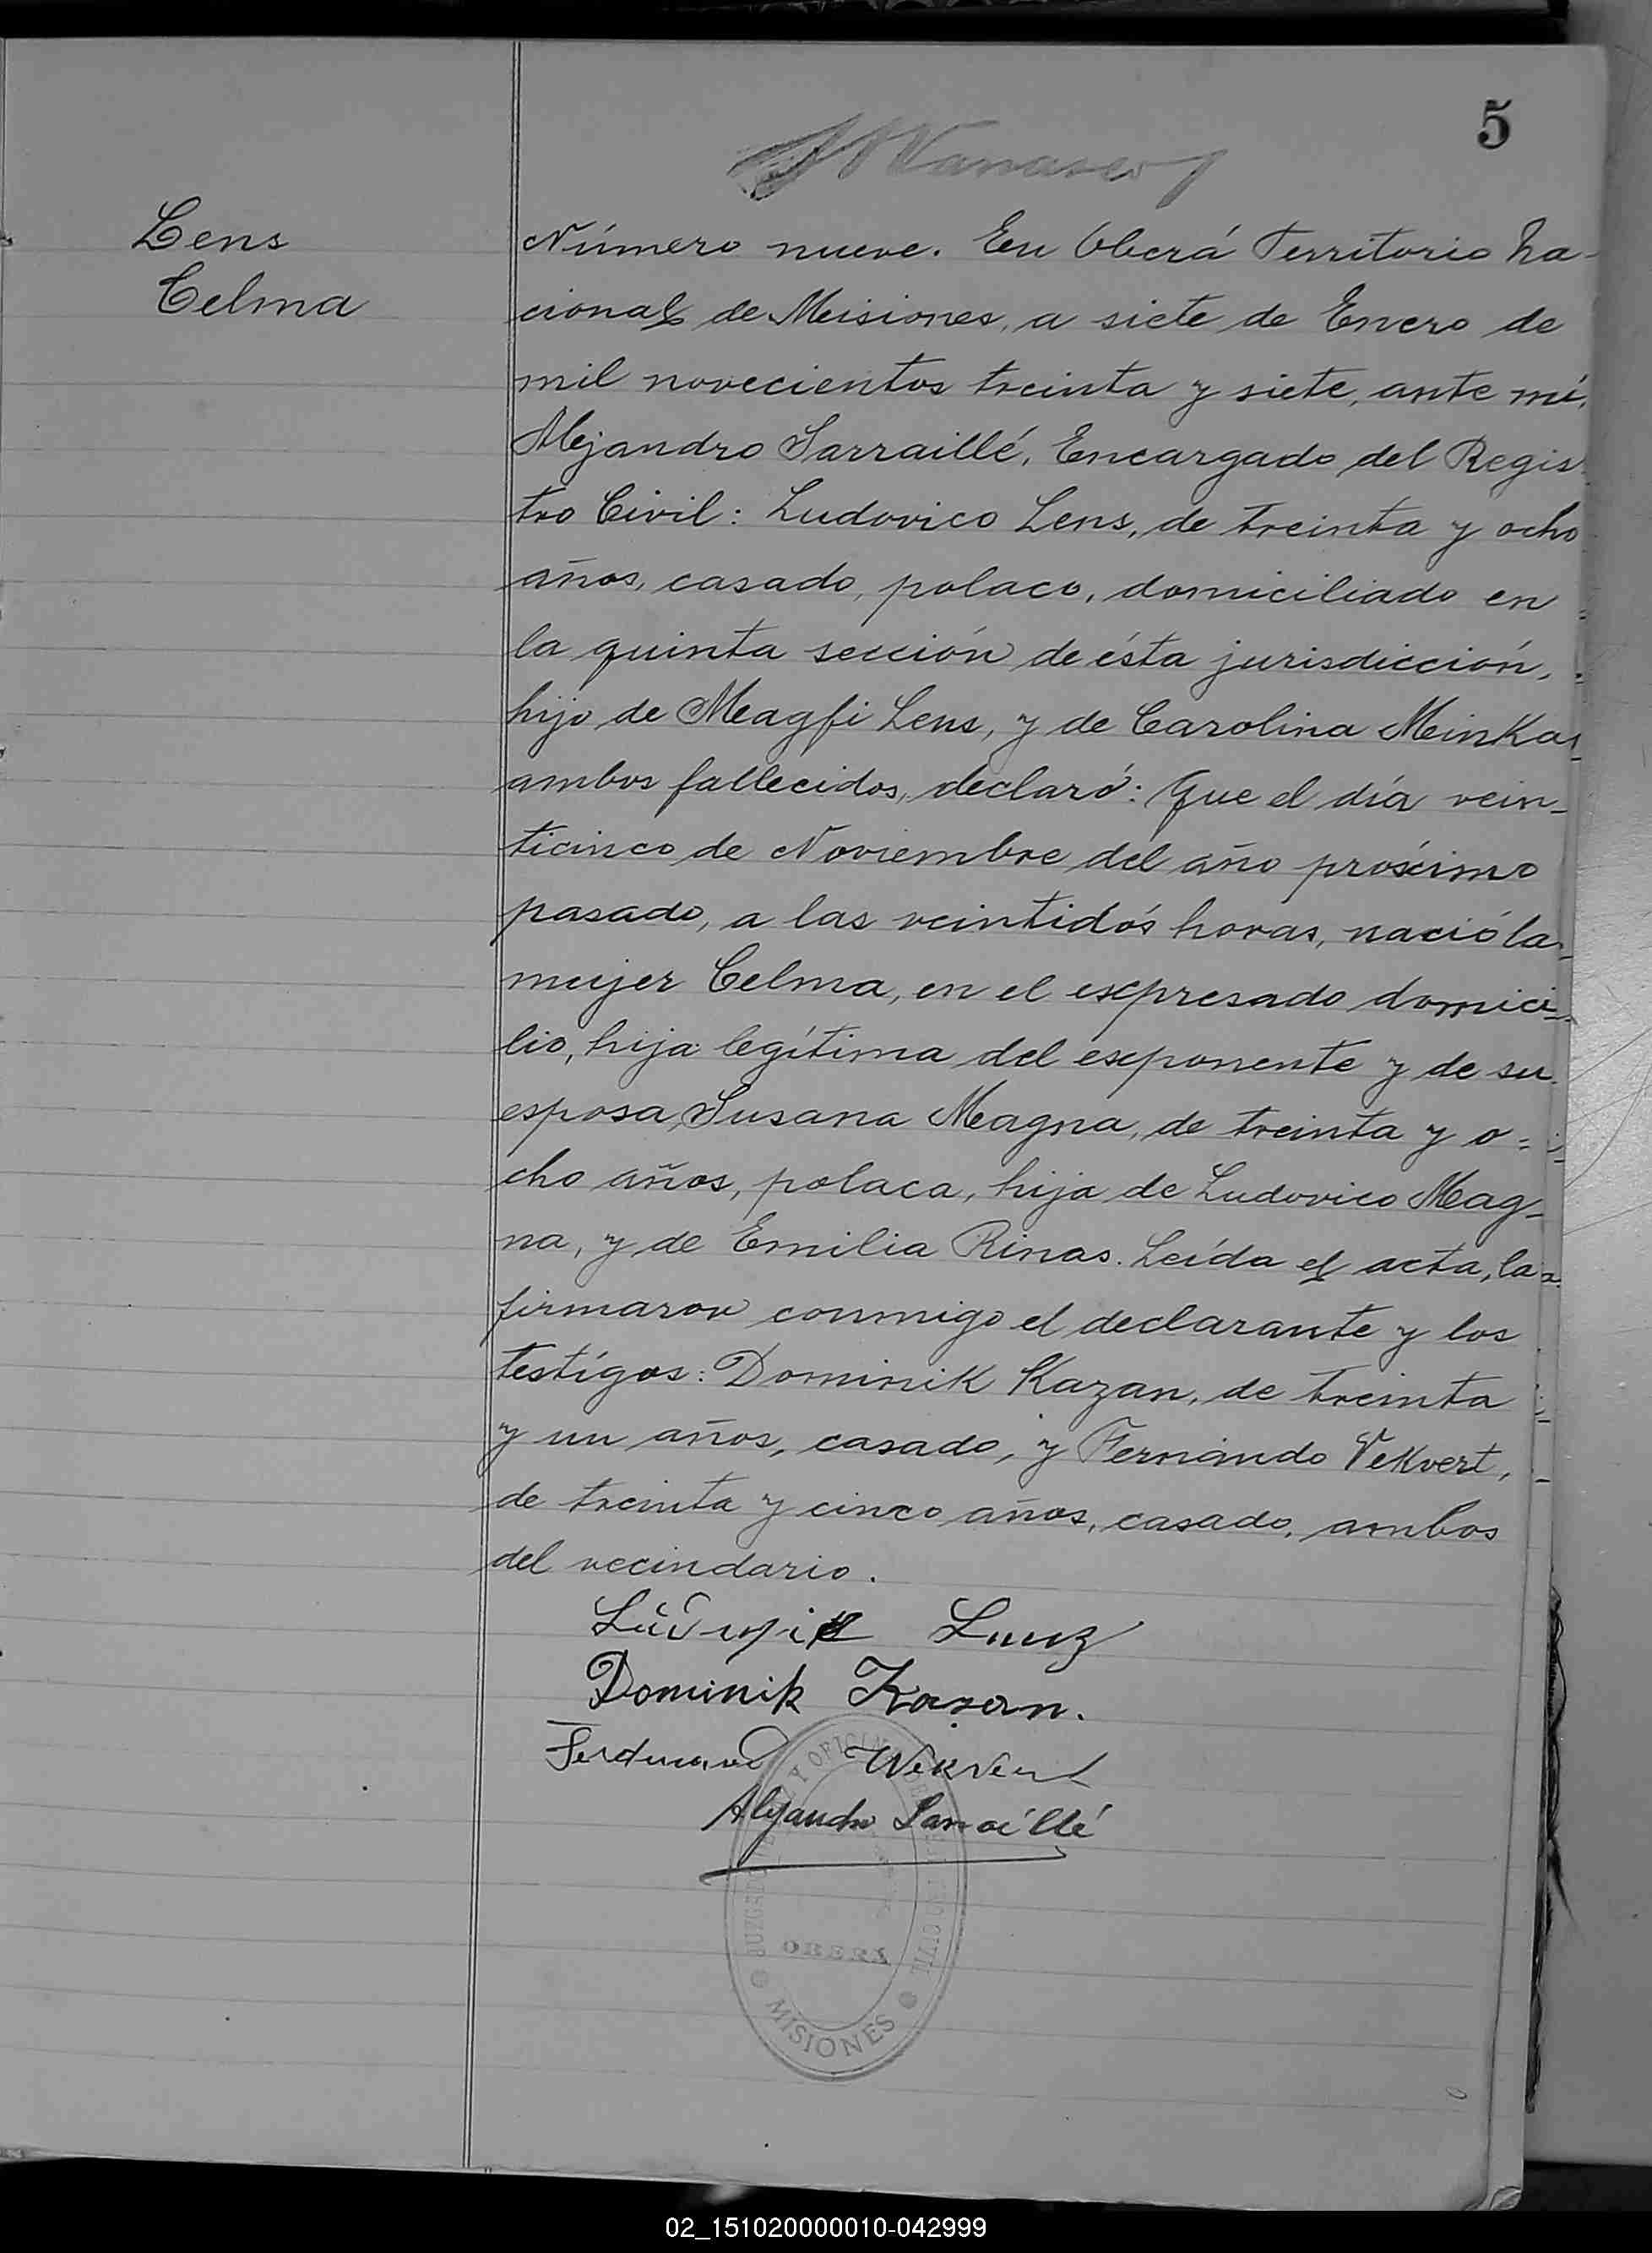 5
Lens
Celma
Número nueve. En Oberá Territorio Na-
cional de Misiones, a siete de Enero de
mil novecientos treinta y siete, ante mí,
Alejandro Sarraillé, Encargado del Regis-
tro Civil: Ludovico Lens, de treinta y ocho
años, casado, polaco, domiciliado en
la quinta sección de ésta jurisdicción,
hijo de Magfi Lens, y de Carolina Meinka,
ambos fallecidos, declaró: Que el día vein-
ticinco de Noviembre del año próximo
pasado, a las veintidós horas, nació la
mujer Celma, en el expresado domici-
lio, hija legítima del exponente y de su
esposa Susana Magna, de treinta y o=
cho años, polaca, hija de Ludovico Mag-
na, y de Emilia Rinas. Leída el acta, la
firmaron conmigo el declarante y los
testígos: Dominik Kazan, de treinta
y un años, casado, y Fernándo Vekvert,
de treinta y cinco años, casado, ambos
del vecindario.
Dominik Kazan.
Alejandro Sarraillé
JUZGADO DE PAZ Y OFICINA DEL REGISTRO CIVIL
OBERA
MISIONES
02_151020000010-042999